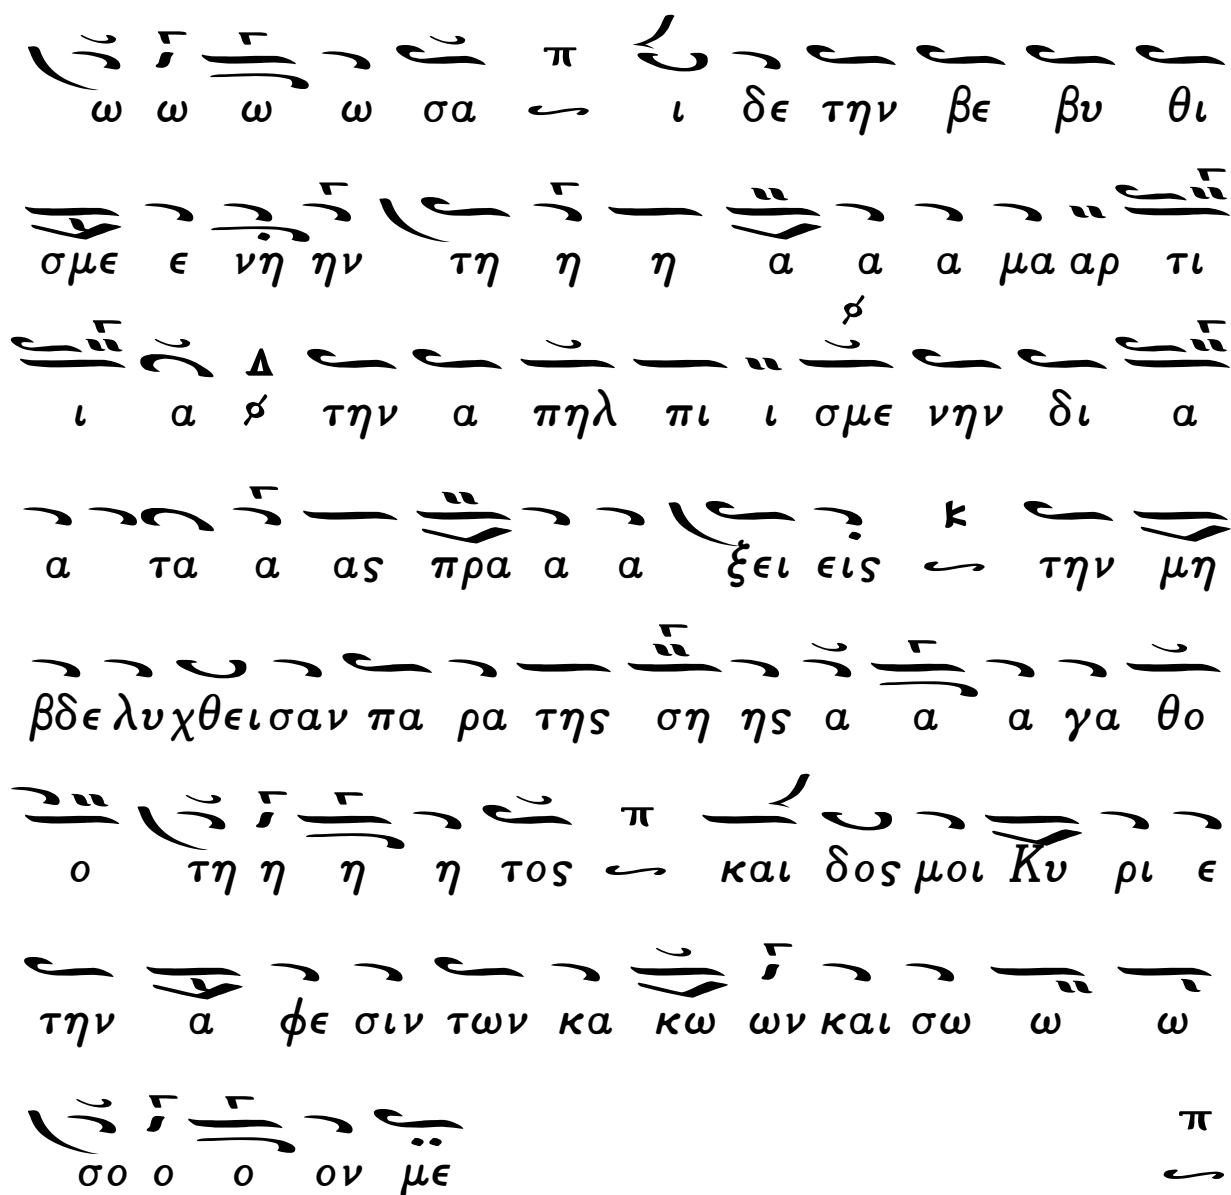 ω ω ω ω σα π ι δε την βε βυ θι
σμε ε νη ην τη η η α α α μα αρ τι
ι α Δ την α πηλ πι ι σμε νην δι α
α τα α ας πρα α α ξει εις κ την μη
βδε λυ χθει σαν πα ρα της ση ης α α α γα θο
ο τη η η η τος π και δος μοι Κυ ρι ε
την α φε σιν των κα κω ων και σω ω ω
σο ο ο ον με π